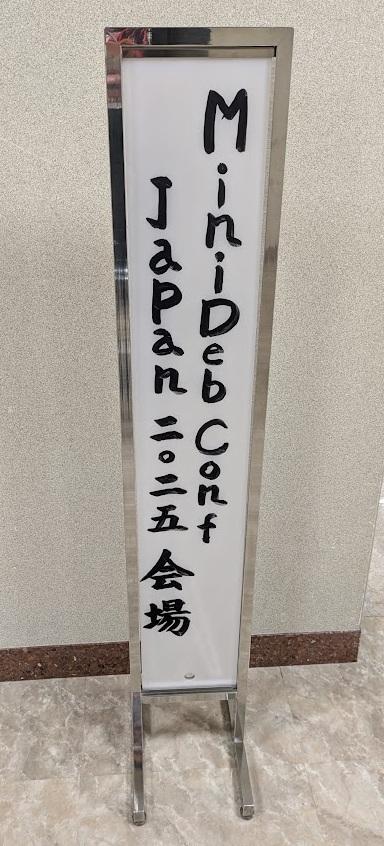 MiniDebConf
Japan 二〇二五 会場